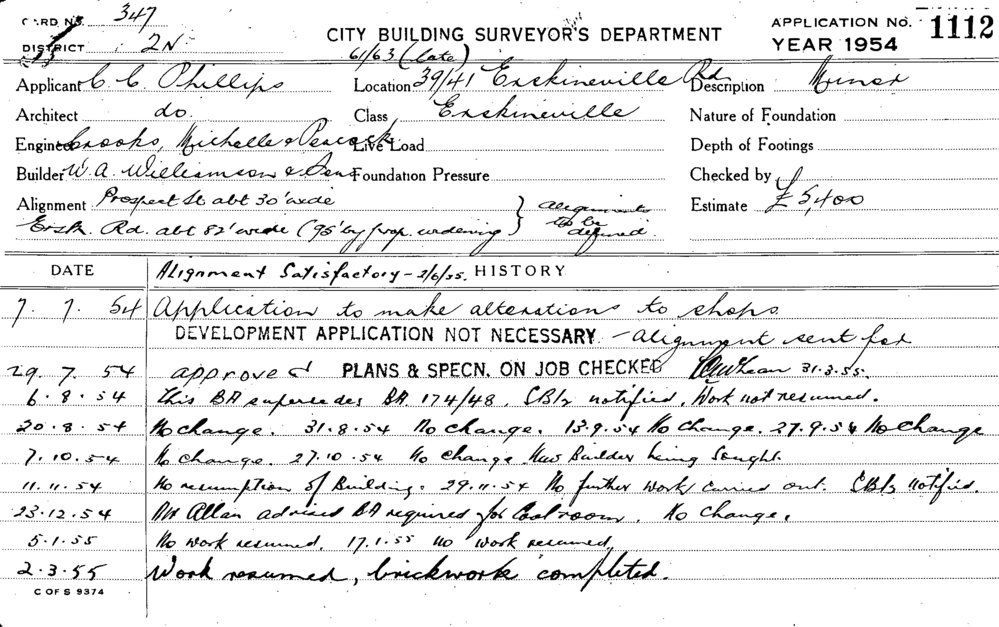 CARD No. 347
DISTRICT 2N
CITY BUILDING SURVEYOR'S DEPARTMENT
APPLICATION No. 1112
YEAR 1954
61/63 (late)
Applicant C. C. Phillips Location 39/41 Erskineville Rd Description Minor
Architect do. Class Erskineville Nature of Foundation
Engineer Crooks, Michelle & Peacock Live Load Depth of Footings
Builder W. A. Williamson & Sons Foundation Pressure Checked by
Alignment Prospect St abt 30' wide } alignments to be defined. Estimate £5,400
Ersk. Rd. abt 82' wide (95' by prop. widening)
DATE Alignment Satisfactory - 2/6/55. HISTORY
7. 7. 54 Application to make alterations to shops
DEVELOPMENT APPLICATION NOT NECESSARY - alignment sent for
29. 7. 54 approved PLANS & SPECN. ON JOB CHECKED 31.3.55.
6. 8. 54 This BA supersedes BA. 174/48. CBIs notified. Work not resumed.
20. 8. 54 No change. 31.8.54 No change. 13.9.54 No change. 27.9.54 No change
7. 10. 54 No change. 27.10.54 No change New Builder being sought.
11. 11. 54 No resumption of Building. 29.11.54 No further work carried out. CBIs notified.
23. 12. 54 Mr Allan advised BA required for Cool room. No change.
5. 1. 55 No work resumed. 17.1.55 no work resumed.
2. 3. 55 Work resumed, brickwork completed.
C OF S 9374